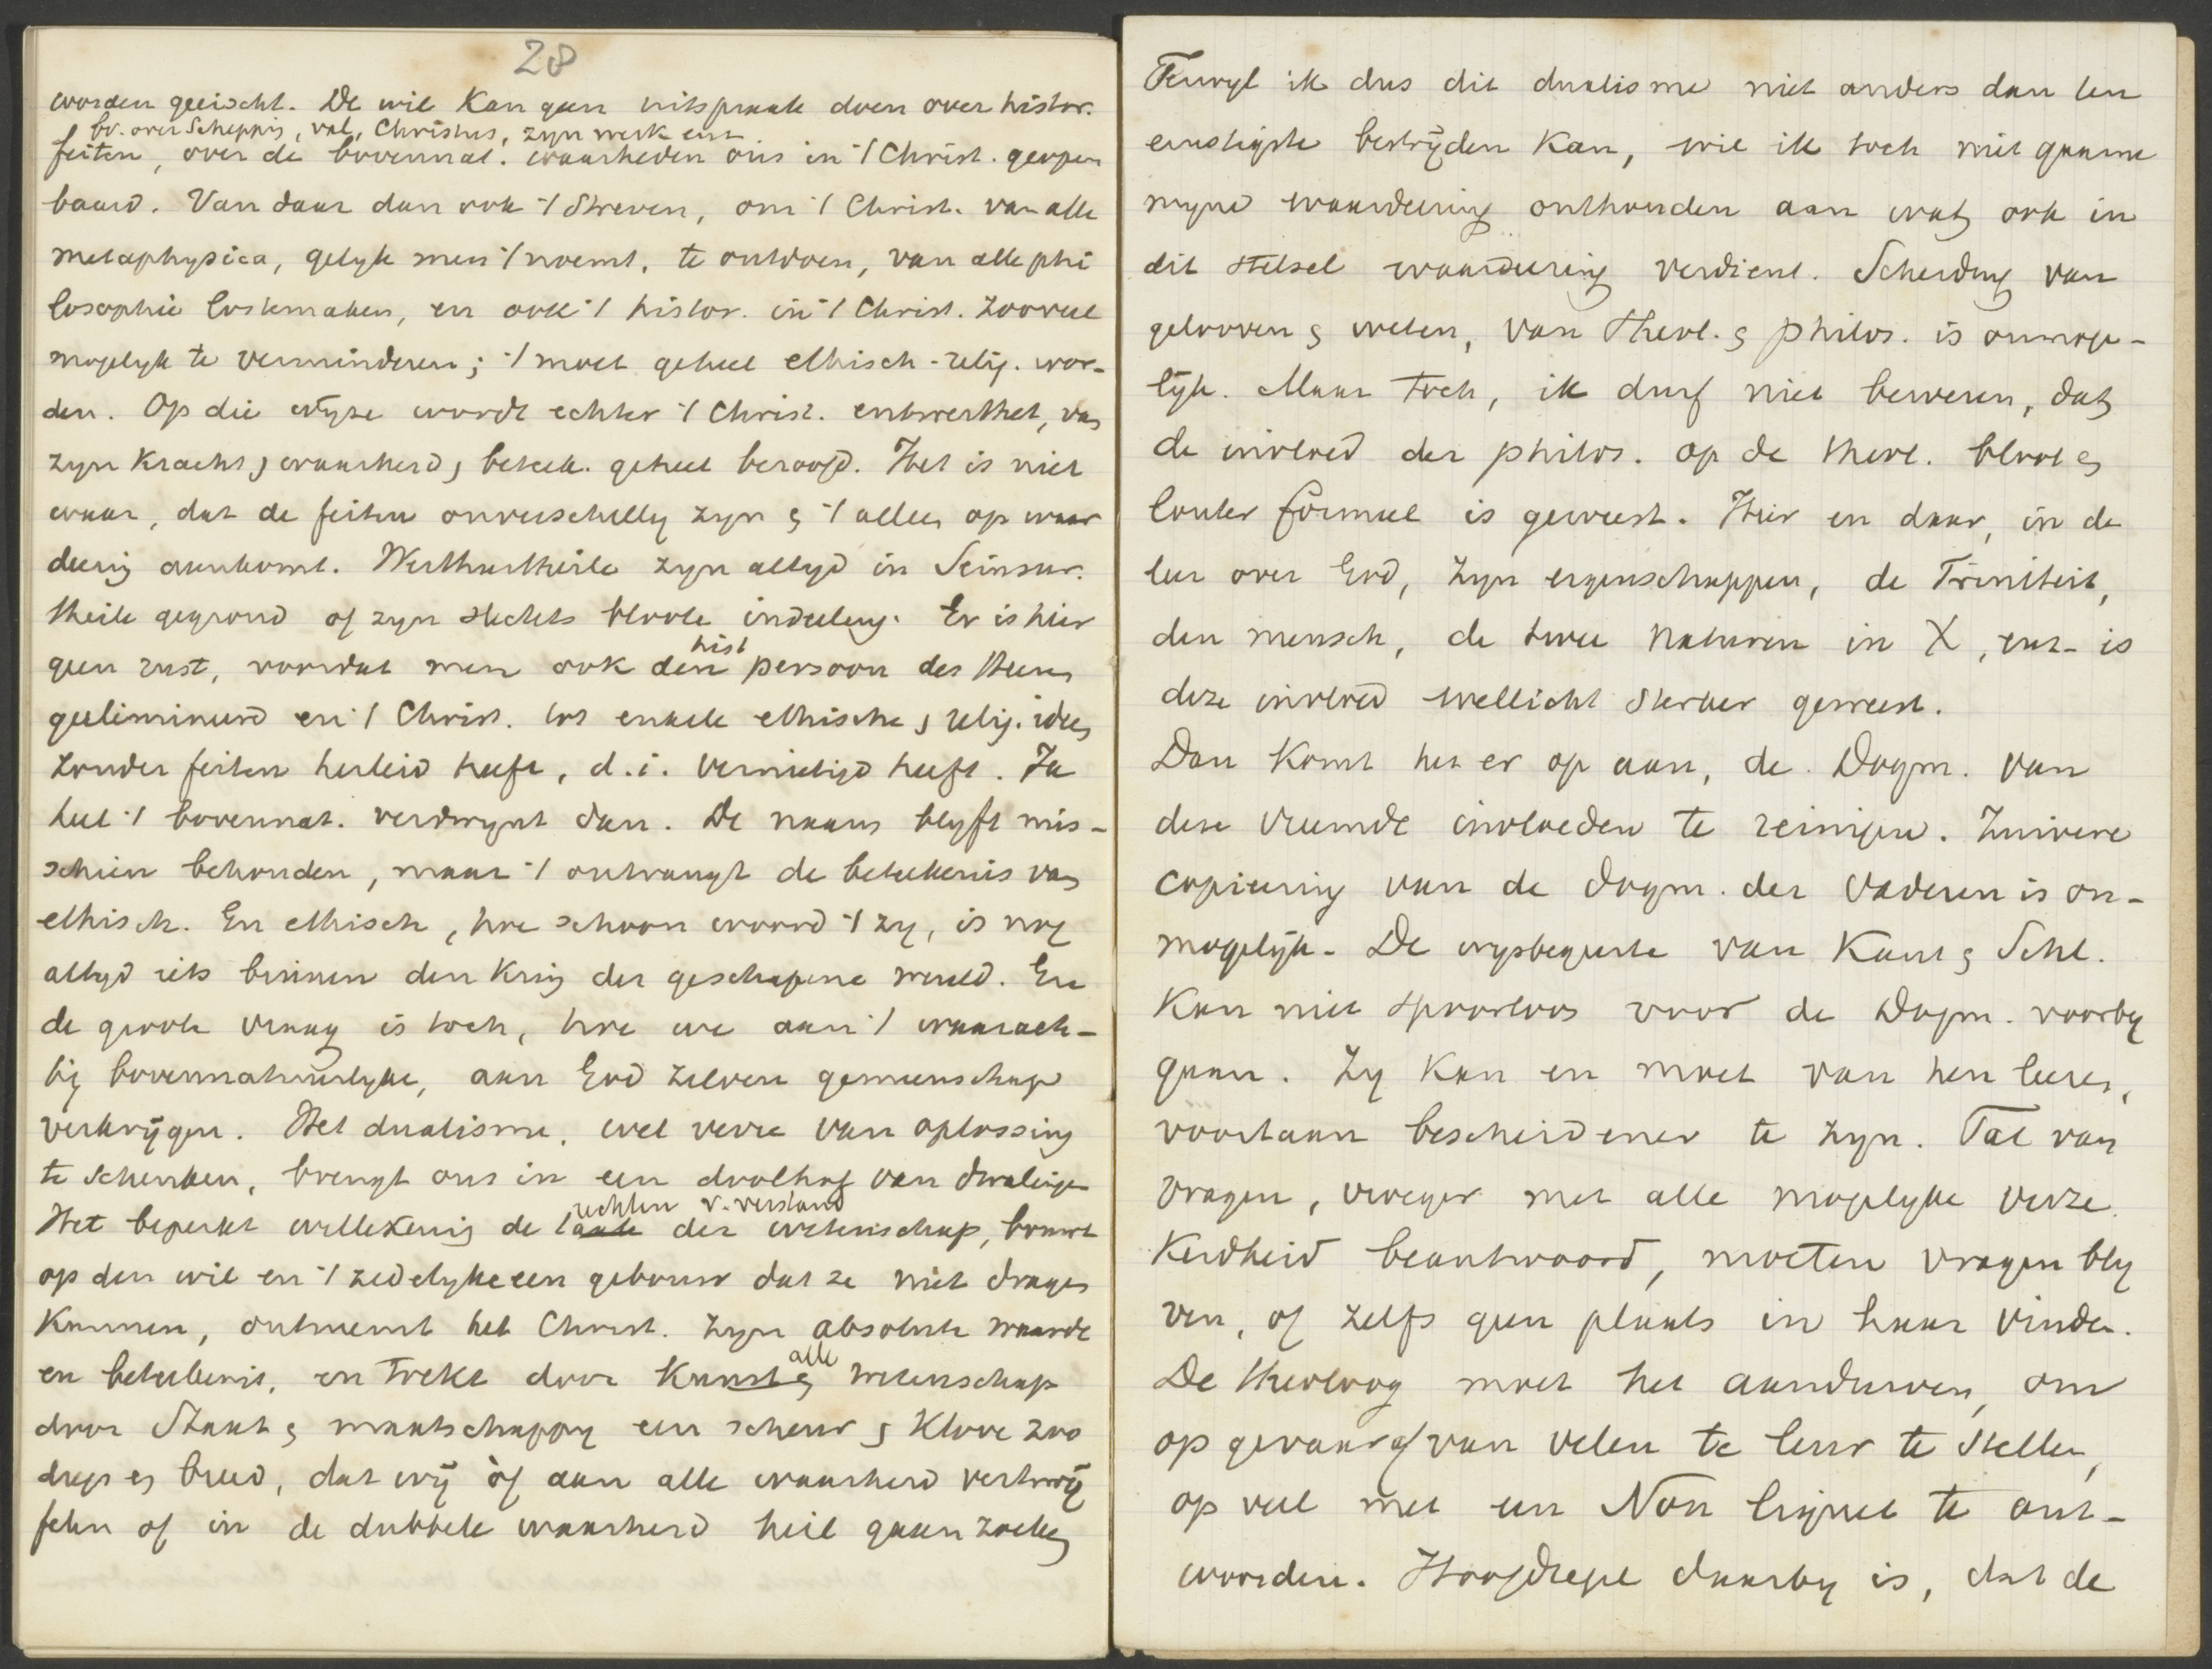 28
worden geeischt. De wil kan geen uitspraak doen over histor.
bv. over Schepping, val, Christus, zyn werk enz
feiten, over de bovennat. waarheden ons in 't Christ. geopen
baard. Van daar dan ook 't streven, om 't Christ. van alle
metaphysica, gelyk men 't noemt, te ontdoen, van alle phi
losophie lostemaken, en ook 't histor. in 't Christ. zooveel
mogelyk te verminderen; 't moet geheel ethisch-relig. wor-
den. Op die wyze wordt echter 't Christ. entwerthet, van
zyn kracht, waarheid, beteek. geheel beroofd. Het is niet
waar, dat de feiten onverschillig zyn & 't alleen op waar
deering aankomt. Werthurtheile zyn altyd in Seinsur.
theile gegrond of zyn slechts bloote inbeelding. Er is hier
hist
geen rust, voordat men ook den persoon des Heeren
geelimineerd en 't Christ. tot enkele ethische, relig. idees
zonder feiten herleid heeft, d.i. vernietigd heeft. Ja
heel 't bovennat. verdwynt dan. De naam blyft mis-
schien behouden, maar 't ontvangt de beteekenis van
ethisch. En ethisch, hoe schoon woord 't zy, is nog
altyd iets binnen den kring der geschapene wereld. En
de groote vraag is toch, hoe we aan 't waarach-
tig bovennatuurlyke, aan God zelven gemeenschap
verkrijgen. Het dualisme, wel verre van oplossing
te schenken, brengt ons in een doolhof van dwalingen
rechten v. verstand
Het beperkt willekeurig de taak der wetenschap, bouwt
op den wil en 't zedelyke een gebouw dat ze niet dragen
kunnen, ontneemt het Christ. zyn absolute waarde
alle
en beteekenis, en trekt door kunst & wetenschap
door Staat & maatschappy een scheur & klove zoo
diep en breed, dat wij òf aan alle waarheid vertwij
felen of in de dubbele waarheid heil gaan zoeken
Terwyl ik dus dit dualisme niet anders dan ten
ernstigste bestrijden kan, wil ik toch niet gaarne
myne waardeering onthouden aan wat ook in
dit stelsel waardeering verdient. Scheiding van
gelooven & weten, van Theol. & philos. is onmoge-
lijk. Maar toch, ik durf niet beweren, dat
de invloed der philos. op de theol. bloot en
louter formeel is geweest. Hier en daar, in de
leer over God, zyn eigenschappen, de Triniteit,
den mensch, de twee naturen in X, enz. is
deze invloed wellicht sterker geweest.
Dan komt het er op aan, de Dogm. van
deze vreemde invloeden te reinigen. Zuivere
copieering van de dogm. der Vaderen is on-
mogelijk. De wysbegeerte van Kant & Schl.
kan niet spoorloos voor de Dogm. voorby
gaan. Zy kan en moet van hen leeren,
voortaan bescheidener te zyn. Tal van
vragen, vroeger met alle mogelyke verze
kerdheid beantwoord, moeten vragen bly
ven, of zelfs geen plaats in haar vinden.
De theoloog moet het aandurven, om
op gevaar af van velen te leur te stellen,
op veel met een Non liquet te ant-
woorden. Hoofdregel daarby is, dat de